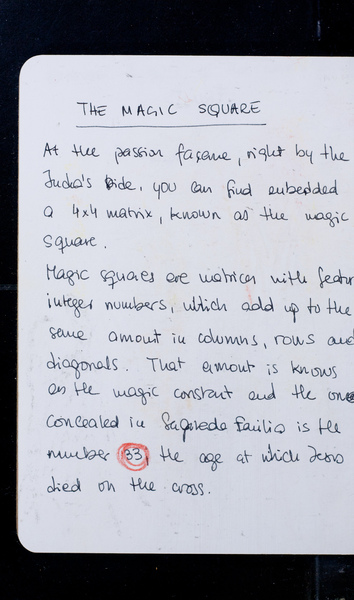 THE MAGIC SQUARE
At the passion façane, right by the
Juda's side, you can find enbedded
a 4x4 matrix, known as the magic
square.
Magic squares are matrices with featur
integer numbers, which add up to the
same amount in columns, rows and
diagonals. That amount is knows
as the magic constant and the one
concealed in Sagrada Failia is the
number 33, the age at which Jesus
died on the cross.